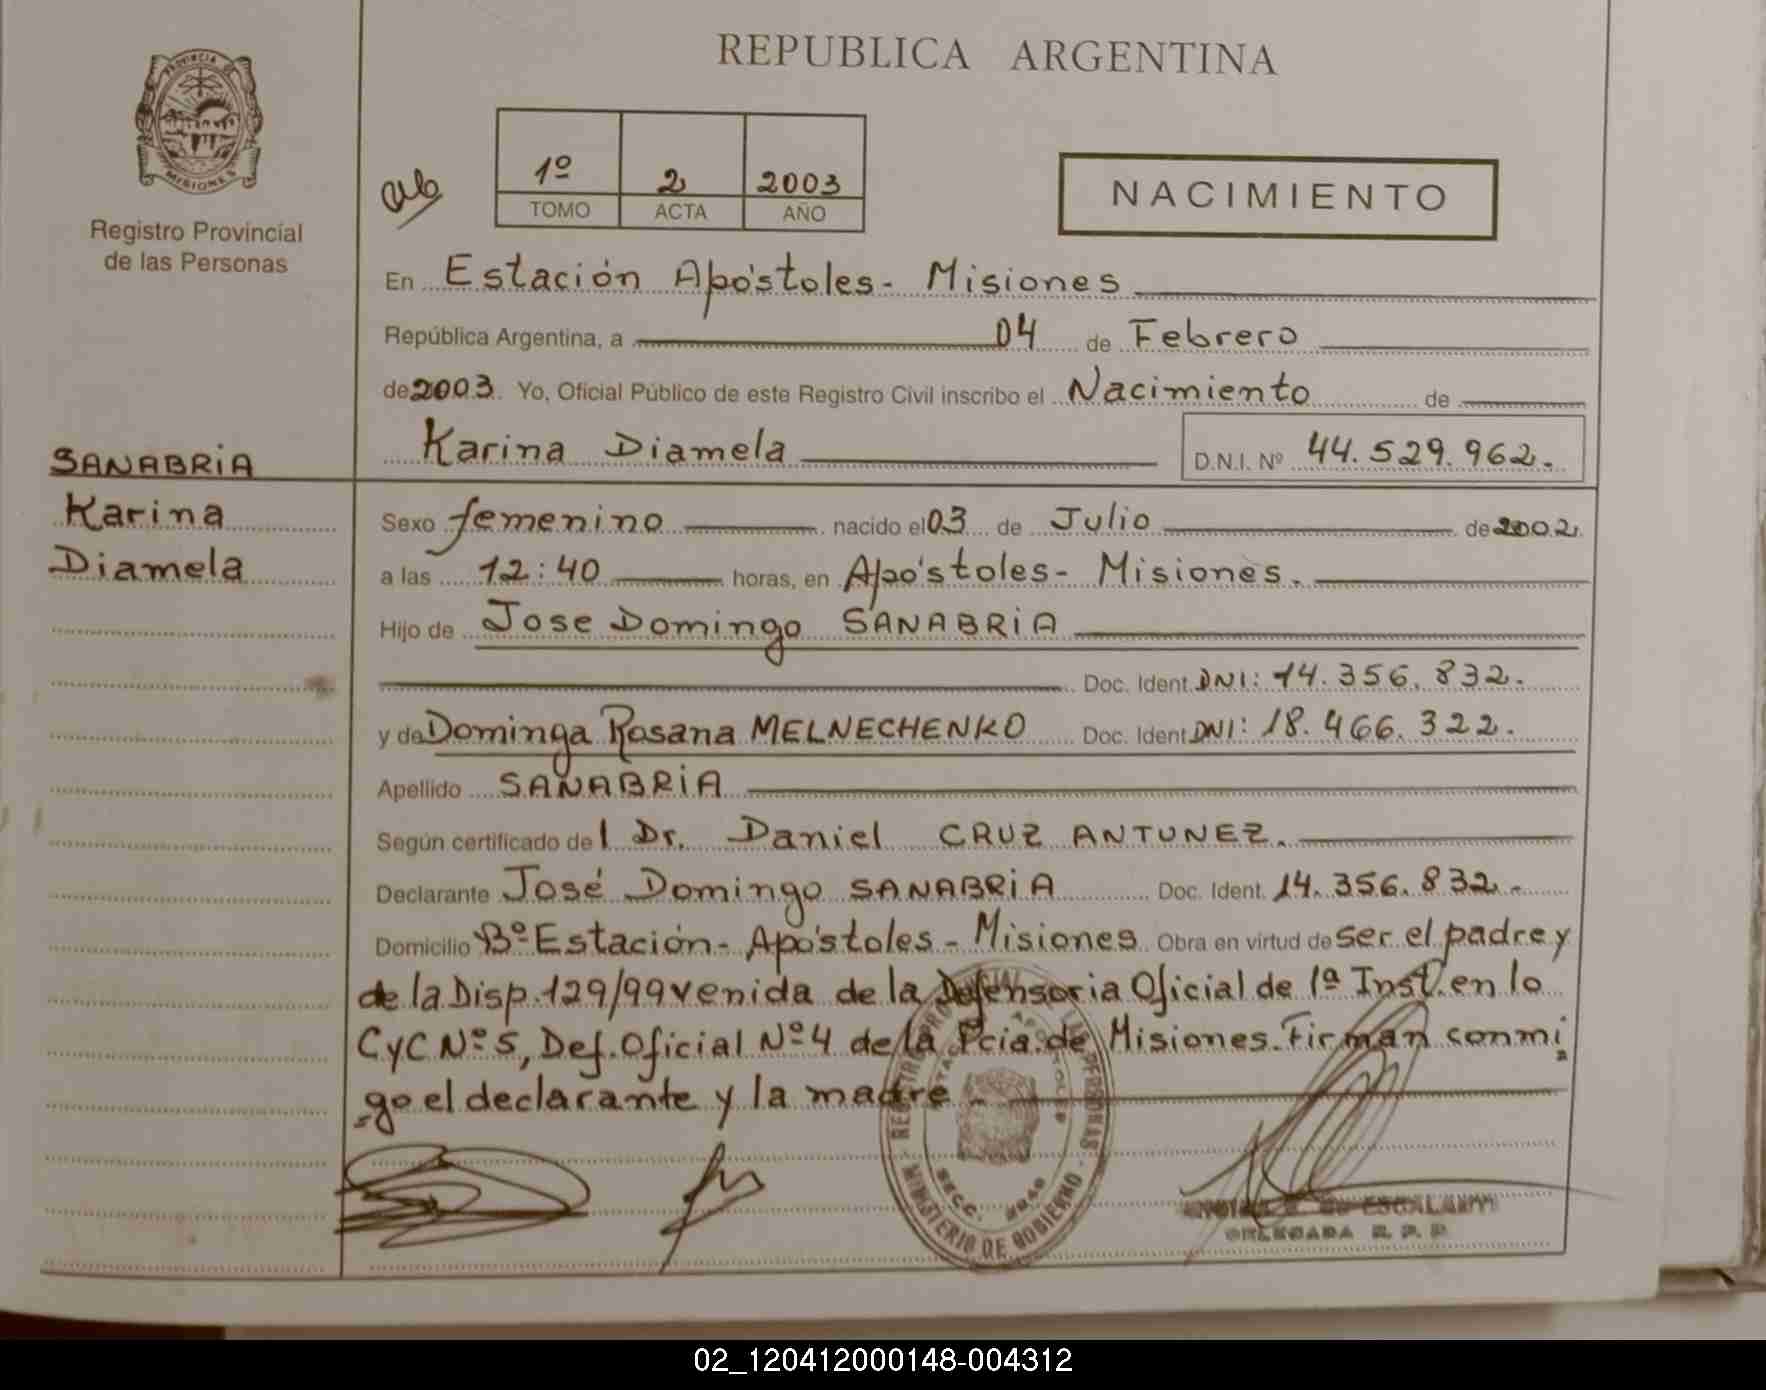 REPUBLICA ARGENTINA
PROVINCIA DE
MISIONES
Registro Provincial
de las Personas
1º 2 2003
TOMO ACTA AÑO
NACIMIENTO
En Estación Apóstoles - Misiones
República Argentina, a 04 de Febrero
de 2003 Yo, Oficial Público de este Registro Civil inscribo el Nacimiento de
Karina Diamela D.N.I. Nº 44.529.962.
SANABRIA
Karina
Diamela
Sexo femenino nacido el 03 de Julio de 2002
a las 12:40 horas, en Apóstoles - Misiones.
Hijo de Jose Domingo SANABRIA
Doc. Ident. DNI: 14.356.832.
y de Dominga Rosana MELNECHENKO Doc. Ident. DNI: 18.466.322.
Apellido SANABRIA
Según certificado de l Dr. Daniel CRUZ ANTUNEZ.
Declarante José Domingo SANABRIA Doc. Ident. 14.356.832.-
Domicilio Bº Estación - Apóstoles - Misiones Obra en virtud de ser el padre y
de la Disp. 129/99 venida de la Defensoria Oficial de 1ª Inst. en lo
CyC Nº 5, Def. Oficial Nº 4 de la Pcia. de Misiones. Firman conmi
go el declarante y la madre.-
MINISTERIO DE GOBIERNO
SECC.
ESCALANTE
DELEGADA R. P. P.
02_120412000148-004312